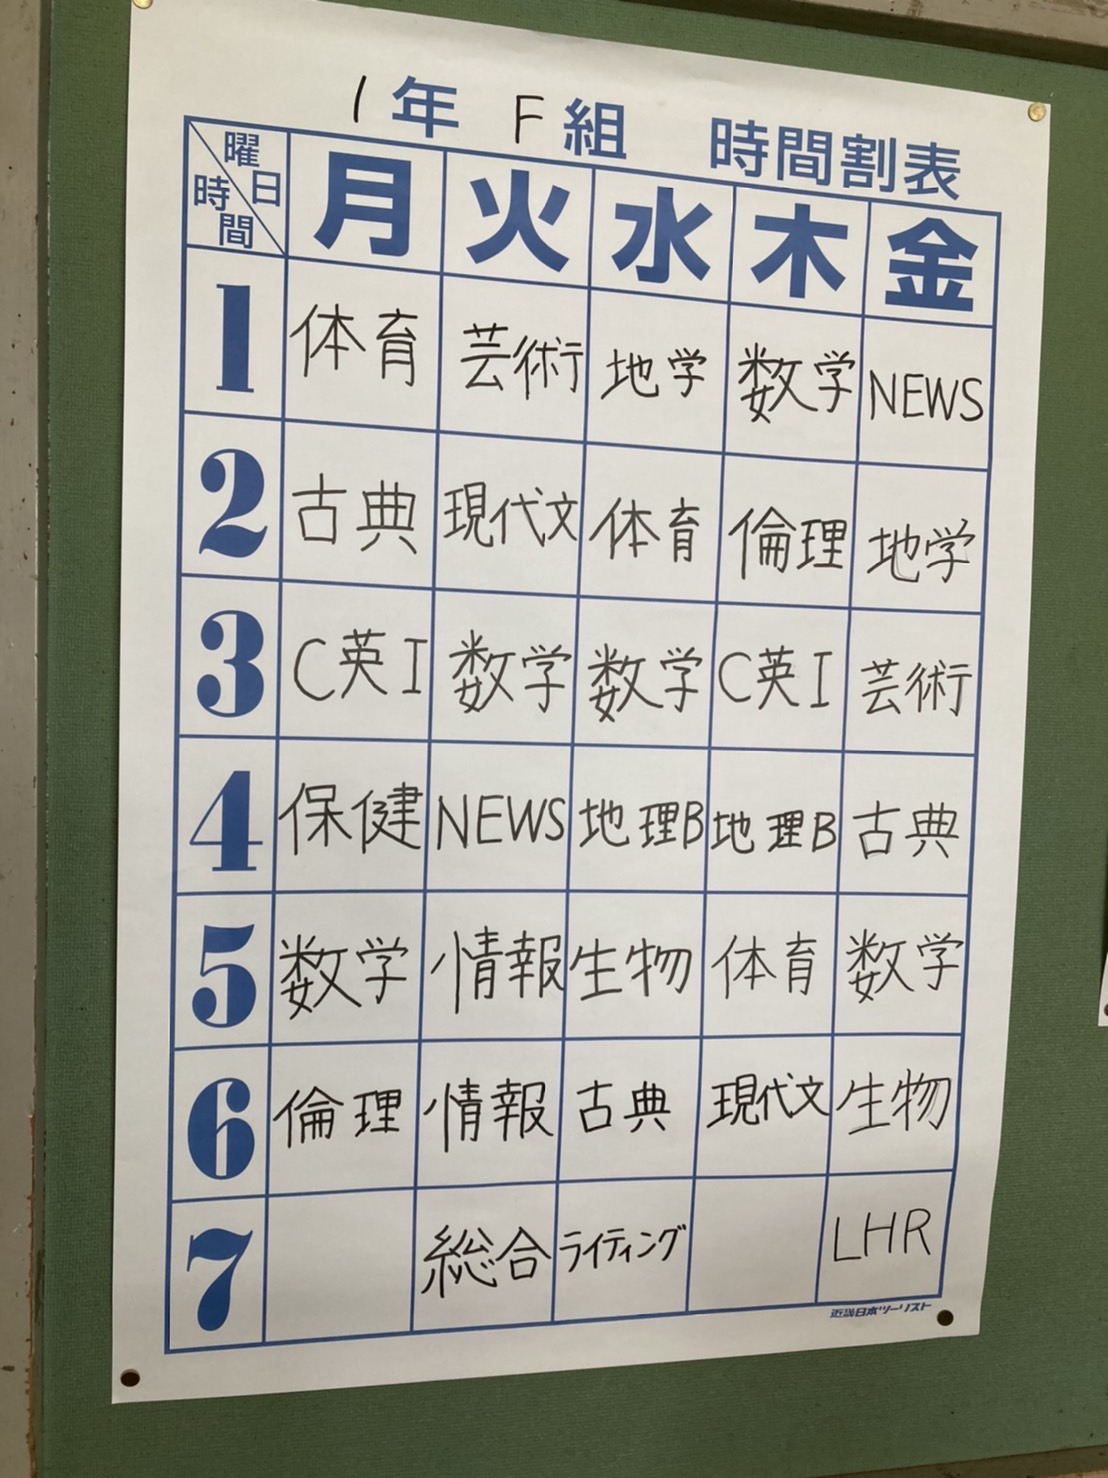 1年 F組 時間割表
曜日 時間 月 火 水 木 金
1 体育 芸術 地学 数学 NEWS
2 古典 現代文 体育 倫理 地学
3 C英I 数学 数学 C英I 芸術
4 保健 NEWS 地理B 地理B 古典
5 数学 情報 生物 体育 数学
6 倫理 情報 古典 現代文 生物
7 総合 ライティング LHR
近畿日本ツーリスト